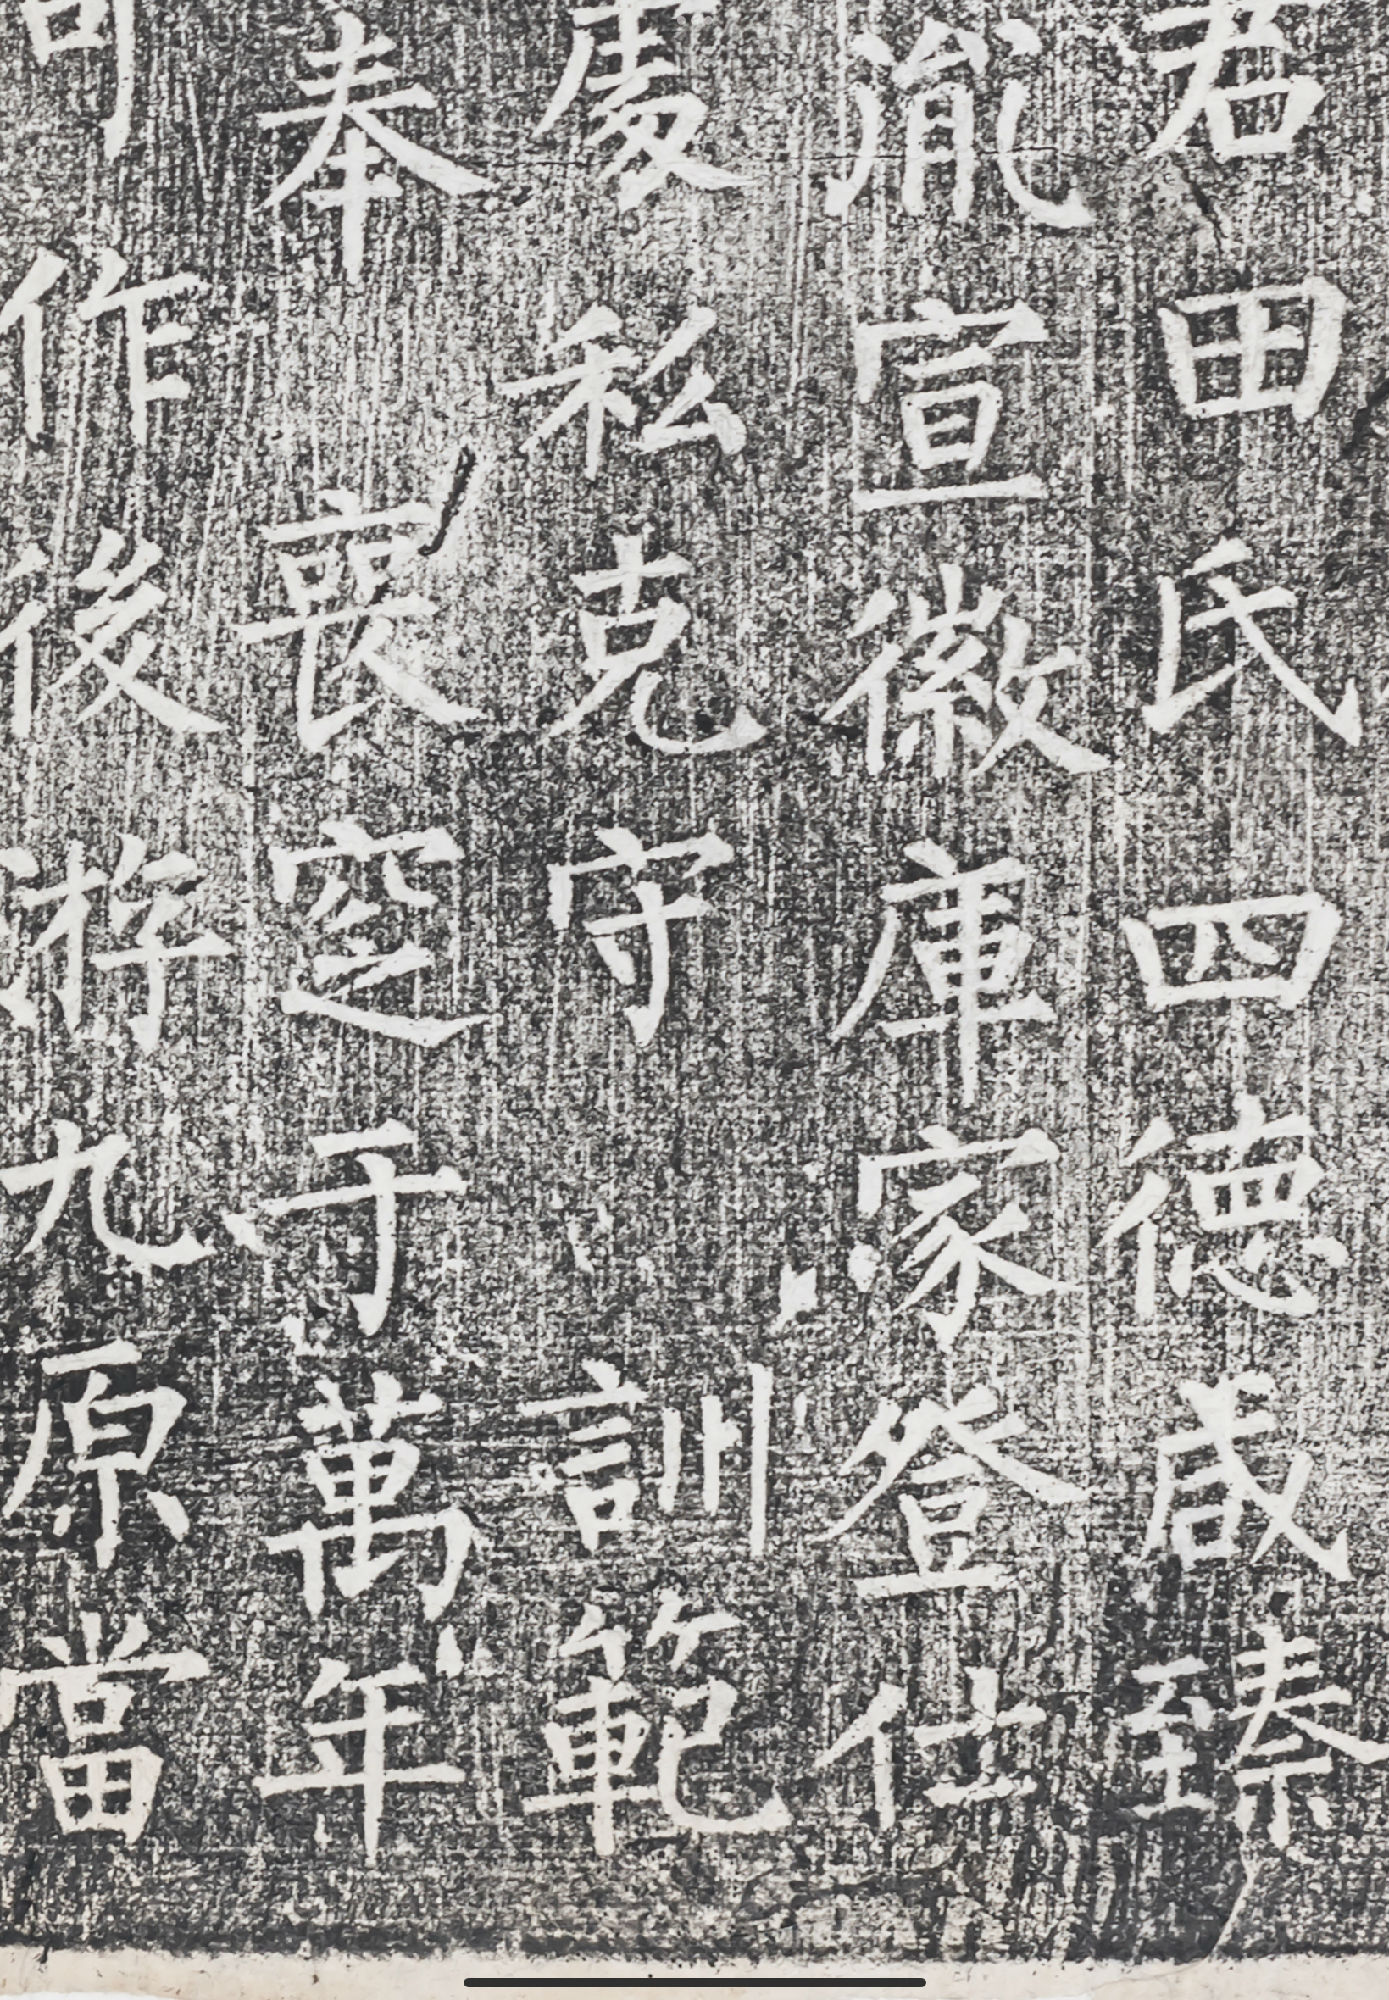 君田氏四德咸臻
胤宣徽庫家登仕
處私克守訓範
奉喪窆于萬年
可作後游九原當